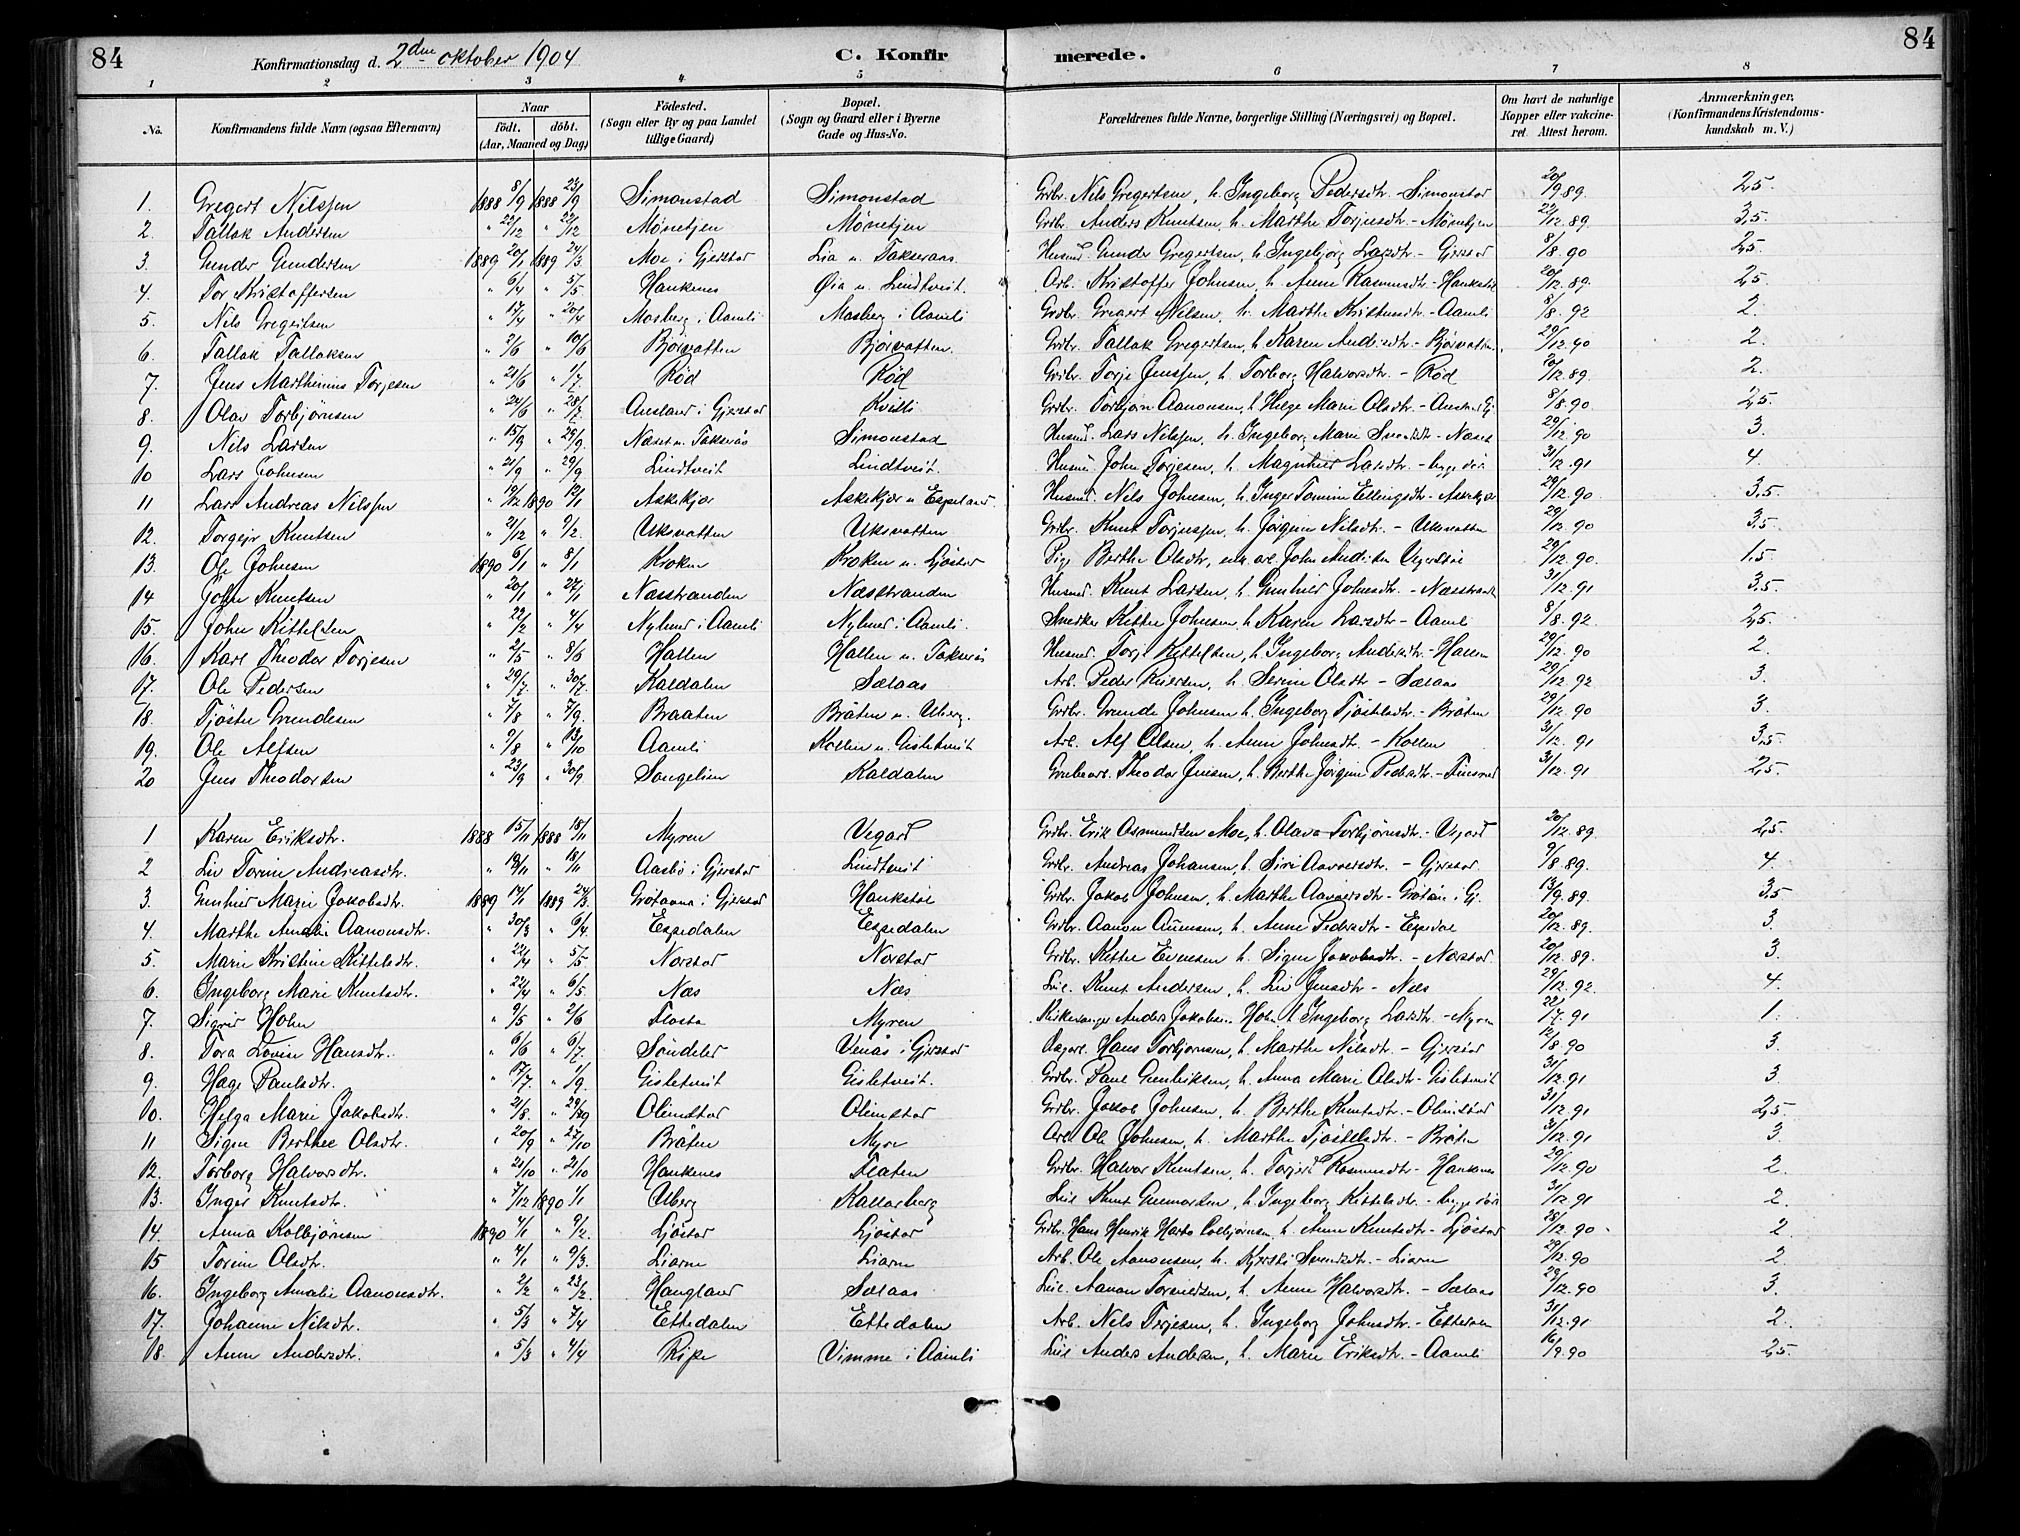 84 Konfirmationsdag d. 2den oktober 1904 C. Konfirmerede. 84
1 2 3 4 5 6 7 8
No. Konfirmandens fulde Navn (ogsaa Efternavn) Naar födt. döbt. (Aar, Maaned og Dag) Födested. (Sogn eller By og paa Landet tillige Gaard) Bopæl. (Sogn og Gaard eller i Byerne Gade og Hus-No. Forældrenes fulde Navne, borgerlige Stilling (Næringsvei) og Bopæl. Om havt de naturlige Kopper eller vakcineret. Attest herom. Anmærkninger, (Konfirmandens Kristendomskundskab m. V.)
1. Gregert Nilssen 1888 8/9 1888 23/9 Simonstad Simonstad Grdbr. Nils Gregertsen, h. Ingeborg Pedersdtr - Simonstad 20/9 89. 2,5.
2. Tallak Andersen " 22/12 " 22/12 Mönetjen Mönetjen Grdbr. Anders Knutsen, h. Marthe Torjusdtr - Mönetjen 22/12 89. 3,5.
3. Gunder Gundersen 1889 20/1 1889 24/3. Moe i Gjerstad Lia u. Takseraas Husmd. Gunder Gregertsen, h. Ingebjörg Larsdtr - Gjerstad 8/8. 90 2,5.
4. Tor Kristoffersen " 6/4 " 5/5 Hankenes Öia u. Lindtveit. Arb. Kristoffer Johnsen, h. Anne Rasmusdtr - 20/12. 89. 2,5
5. Nils Gregertsen " 17/4 " 20/4 Masberg i Aamli Masberg i Aamli Grdbr. Gregert Nilsen, h. Marthe Kristensdtr - Aamli 8/8. 92 2.
6. Tallak Tallaksen " 2/6 " 10/6 Björvatten Björvatten. Grdbr. Tallak Gregertsen, h. Karen Andersdtr - 29/12. 90 2.
7. Jens Marthinius Torjesen " 21/6 " 1/7 Röd Röd Grdbr. Torje Jenssen, h. Torborg Halvorsdtr. - Röd 20/12. 89. 2.
8. Olav Torbjörnsen " 24/6 " 28/7. Ausland i Gjerstad Kvitli Grdbr. Torbjörn Aanonsen, h. Helge Marie Olsdtr - 8/8. 90 2,5.
9. Nils Larsen " 15/9 " 29/9. Næset u. Takserås Simonstad Husmd. Lars Nilssen, h. Ingeborg Marie - Næset 29/12. 90 3.
10 Lars Johnsen " 21/9 " 29/9 Lindtveit Lindtveit. Husmd. John Torjesen, h. Larsdtr - 31/12. 91 4.
11 Lars Andreas Nilssen " 19/12 1890 12/1 Askekjær Askekjær u. Espeland. Husmd. Nils Johnsen, h. Inger Tomine Ellingsdtr - Askekjær 29/12. 90 3,5.
12. Torgeir Knutsen " 21/12 " 9/2. Uksvatten Uksvatten Grdbr. Knut Torjussen, h. Jörgine Nilsdtr. - Uksvatten 29/12. 90 3,5
13. Ole Johnsen 1890 6/1 " 8/1 Kroken Kroken u. Ljöstad Pige Berthe Olsdtr, John Andersen 29/12. 90. 1,5.
14 John Knutsen " 20/1 " 24/1 Næsstranden Næsstranden Husmd. Knut Larsen, h. Gunhild Johnsdtr. - Næsstrand 31/12. 91 3,5.
15. John Kittelsen " 22/2 " 4/4 i Aamli i Aamli. Snedker Kittel Johnsen, h. Karen Larsdtr - Aamli 8/8. 92 2,5.
16. Karl Theodor Torjesen " 2/5 " 8/6 Hallen Hallen u. Takserås Husmd. Torje Kittelsen, h. Ingeborg Andersdtr. - Hallen 29/12. 90 2.
17. Ole Pedersen " 29/7 " 30/7. Kaldalen Sælaas Arb. Peder, h. Serine Olsdtr - Sælaas 29/12. 92 3.
18. Tjöstel Grundesen " 7/8 " 7/9. Braaten Bråten u. Uberg. Grdbr. Grunde Johnsen, h. Ingeborg Tjöstelsdtr. - Bråten 29/12. 90 3.
19. Ole Alfsen " 9/8 " 13/10 Aamli Kollen u. Gisletveit Arb. Alf Olsen, h. Anne Johnsdtr. - Kollen 31/12. 91 3,5.
20 Jens Theodorsen " 23/9 " 30/9 Songelien Kaldalen Grubearb. Theodor Jensen, h. Berthe Jörgine Pedersdtr. - 31/12. 91 2,5.
1 Karen Eriksdtr. 1888 15/11 1888 18/11 Myren Vegard Grdbr. Erik Osmundsen Moe, h. Olava Torbjörnsdtr. - Vegard 20/12. 89. 2,5.
2 Liv Torine Andreasdtr. " 12/11 " 18/11 Aasbö i Gjerstad Lindtveit Grdbr. Andreas Johansen, h. Siri Aavoldsdtr. - Gjerstad 9/8. 89. 4.
3. Gunhild Marie Jakobsdtr. 1889 14/1 1889 24/3. i Gjerstad Hankstöl Grdbr. Jakob Johnsen, h. Marthe Aavoldsdtr - i Gj. 13/9. 89. 3,5
4. Marthe Amalie Aanonsdtr. " 30/3 " 6/4. Espedalen Espedalen Grdbr. Aanon, h. Anne Pedersdtr - Espedal 20/12. 89. 3.
5. Marie Kristine Kittelsdtr. " 22/4 " 5/5 Norstad Norstad Grdbr. Kittel Evensen, h. Signe Jakobsdtr. - Norstad 20/12. 89. 3.
6. Ingeborg Marie Knutsdtr. " 22/4 " 6/5. Næs Næs Leil. Knut Andersen, h. Liv Jensdtr - Næs 29/12. 92. 4.
7. Sigrid Holm " 9/5 " 2/6 Flosta Myren Kirkesanger Anders Jakobsen Holm, h. Ingeborg Larsdtr. - Myren 22/7. 91 1.
8. Tora Lovise Hansdtr. " 6/6 " 6/7. Söndeled Venås i Gjerstad Hans Torbjörnsen, h. Marthe Nilsdtr. - Gjerstad 12/8. 90 3.
9. Hæge Paulsdtr. " 17/7. " 1/9. Gisletveit Gisletveit. Grdbr. Paul Gunleiksen, h. Anna Marie Olsdtr - Gisletveit 31/12. 91 3.
10. Helga Marie Jakobsdtr. " 21/8. " 29/9 Olimstad Olimstad Grdbr. Jakob Johnsen, h. Berthe Knutsdtr. - Olimstad 31/12. 91 2,5.
11 Signe Berthee Olsdtr. " 20/9 " 27/10 Bråten Myre Arb. Ole Johnsen, h. Marthe Tjöstelsdtr. - Bråten 31/12. 91 3.
12. Torborg Halvorsdtr. " 21/10 " 21/10 Hankenes Flaten Grdbr. Halvor Knutsen, h. Torjerd Rasmusdtr - Hankenes 29/12. 90 2.
13. Inger Knutsdtr. " 7/12 1890 1/1 Uberg Kallarberg Leil. Knut Gunnarsen, h. Ingeborg Kittelsdtr. - 31/12. 91 2.
14. Anna Kolbjörnsen 1890 4/1 " 9/2. Ljöstad Ljöstad Grdbr. Hans Henrik Colbjörnsen, h. Anne Knutsdtr - Ljöstad 28/12. 90 2
15 Torine Olsdtr. " 4/1 " 9/3. Liarne Liarne Arb. Ole Aanonsen, h. Kjersti Svendsdtr. - Liarne 29/12. 90 2
16. Ingeborg Amalie Aanonsdtr. " 2/2 " 23/2. Haugland Sælaas Leil. Aanon, h. Anne Halvorsdtr. - Sælaas 29/12. 90 3.
17. Johanne Nilsdtr. " 5/3 " 7/4 Ettedalen Ettedalen Arb. Nils Terjesen, h. Ingeborg Johnsdtr - Ettedalen 31/12. 91 2.
18. Anne Andersdtr. " 5/3 " 4/4 Ripe Vimme i Aamli Leil. Anders Andersen, h. Marie Eriksdtr. - Aamli 16/9. 90 2,5.